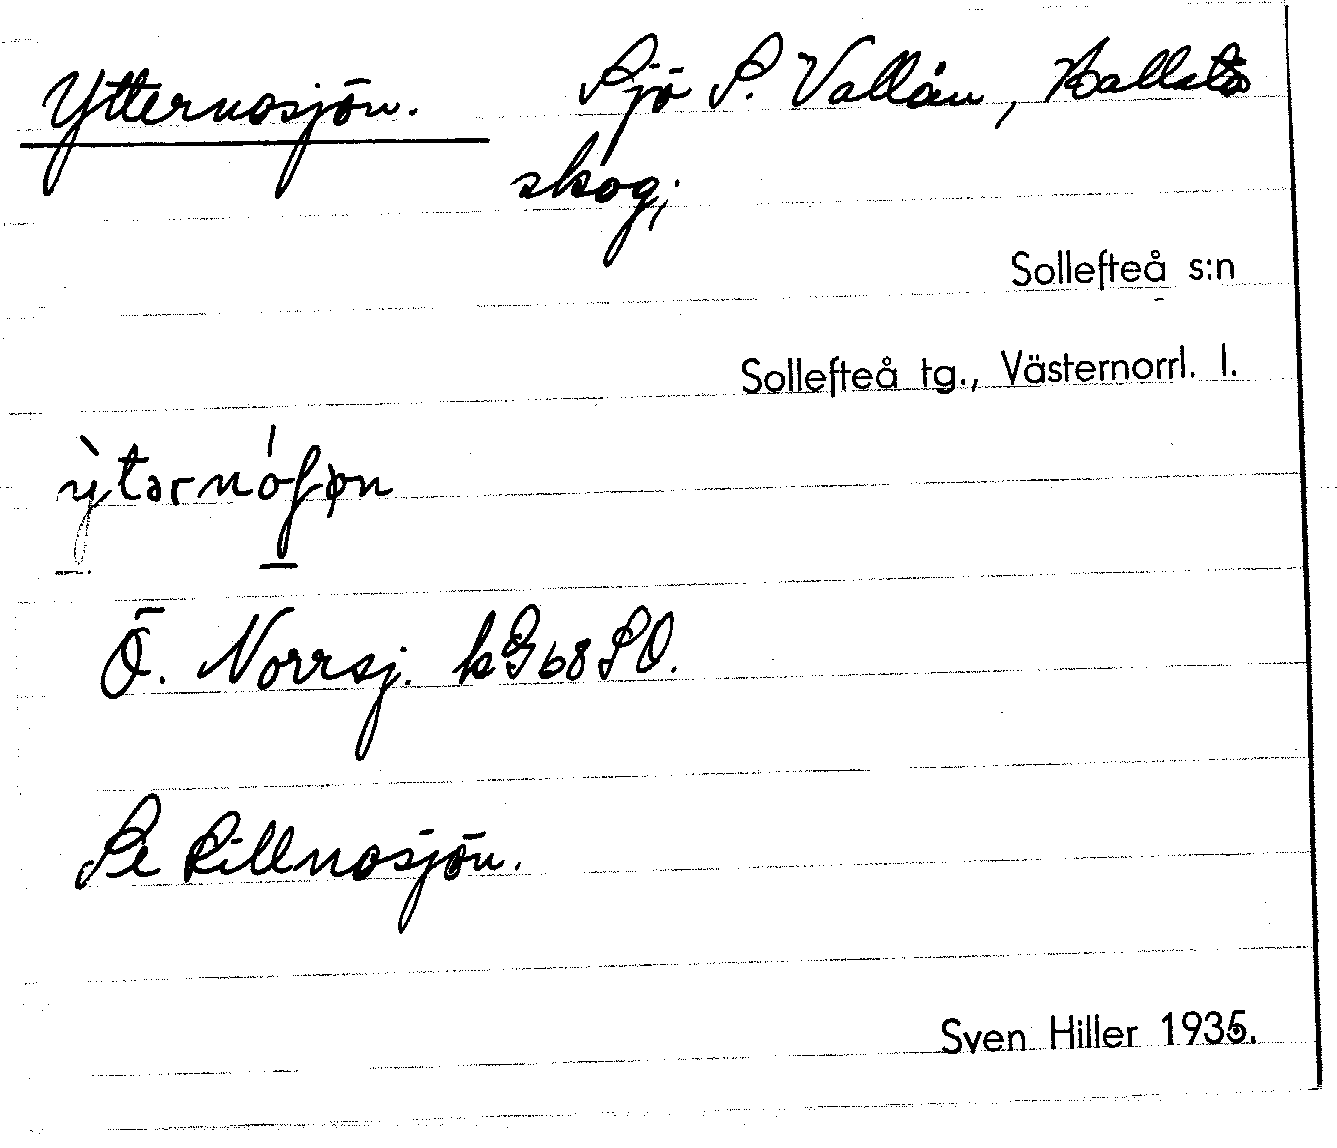 Ytternosjön. Sjö S. Vallån, Hallsta
skog;
Sollefteå s:n
Sollefteå tg., Västernorrl. l.
Ö. Norrsj. k G 68 SO.
Se Lillnosjön.
Sven Hiller 1935.